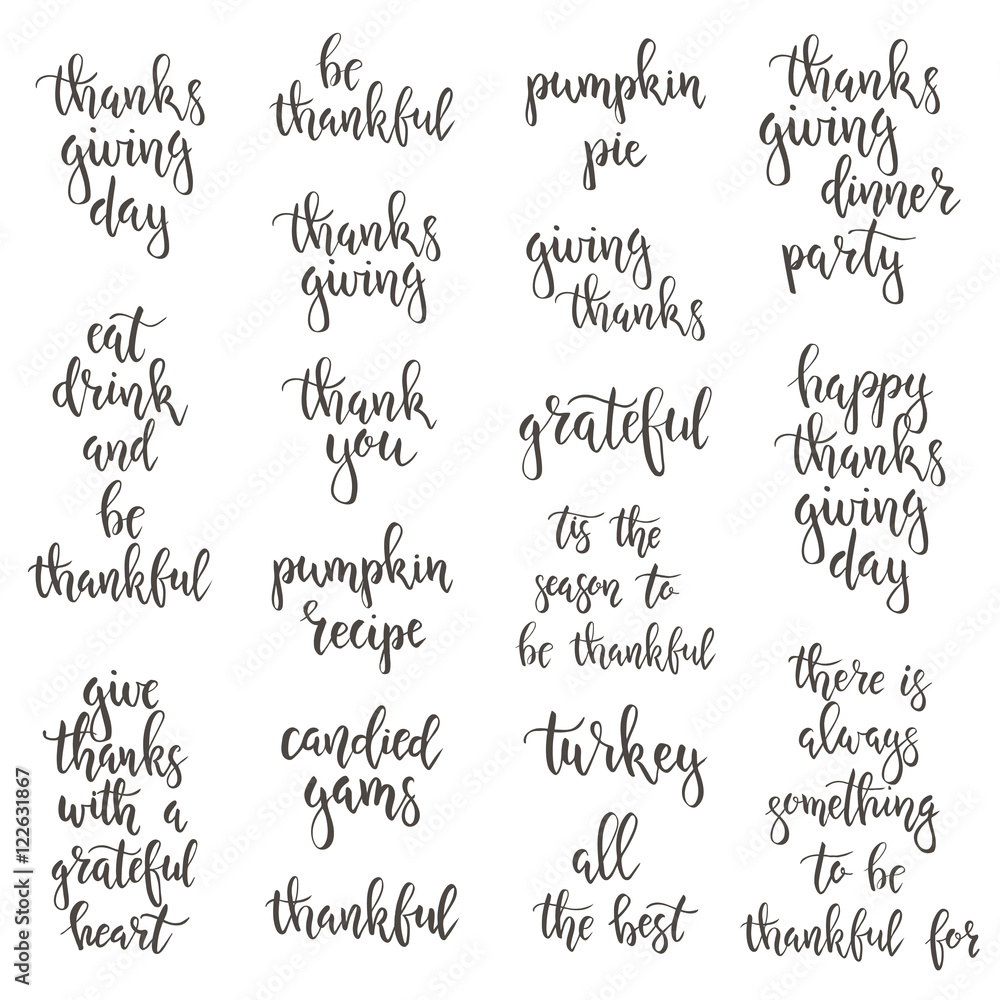 thanks
giving
day
eat
drink
and
be
thankful
give
thanks
with a
grateful
heart
be
thankful
thanks
giving
thank
you
pumpkin
recipe
candied
yams
thankful
pumpkin
pie
giving
thanks
grateful
tis the
season to
be thankful
turkey
all
the best
thanks
giving
dinner
party
happy
thanks
giving
day
there is
always
something
to be
thankful for
Adobe Stock | #122631867